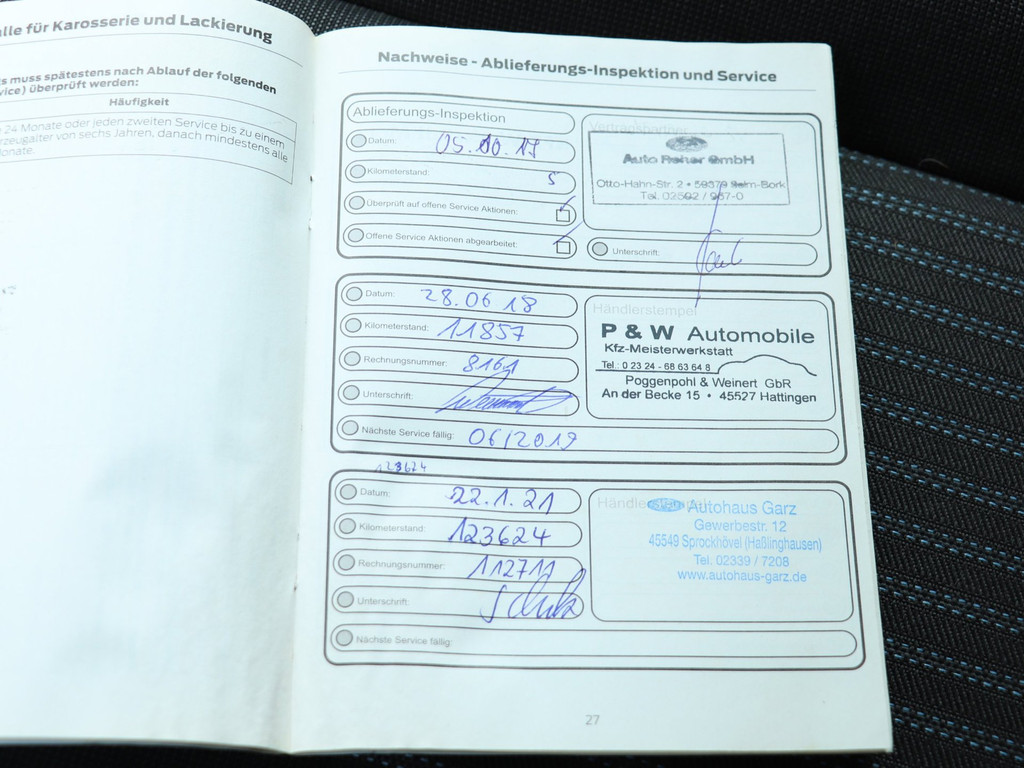 lle für Karosserie und Lackierung
s muss spätestens nach Ablauf der folgenden
vice) überprüft werden:
Häufigkeit
24 Monate oder jeden zweiten Service bis zu einem
rzeugalter von sechs Jahren, danach mindestens alle
onate.
Nachweise - Ablieferungs-Inspektion und Service
Ablieferungs-Inspektion
Datum: 05.10.17
Kilometerstand: 5
Überprüft auf offene Service Aktionen:
Offene Service Aktionen abgearbeitet:
Vertragspartner
Auto GmbH
Otto-Hahn-Str. 2 • 59379 Selm-Bork
Tel. 02592 / 967-0
Unterschrift:
Datum: 28.06.18
Kilometerstand: 11857
Rechnungsnummer: 8161
Unterschrift:
Nächste Service fällig: 06/2019
Händlerstempel
P & W Automobile
Kfz-Meisterwerkstatt
Tel.: 0 23 24 - 68 63 64 8
Poggenpohl & Weinert GbR
An der Becke 15 • 45527 Hattingen
123624
Datum: 22.1.21
Kilometerstand: 123624
Rechnungsnummer: 112711
Unterschrift:
Nächste Service fällig:
Händlerstempel
Autohaus Garz
Gewerbestr. 12
45549 Sprockhövel (Haßlinghausen)
Tel. 02339 / 7208
www.autohaus-garz.de
27